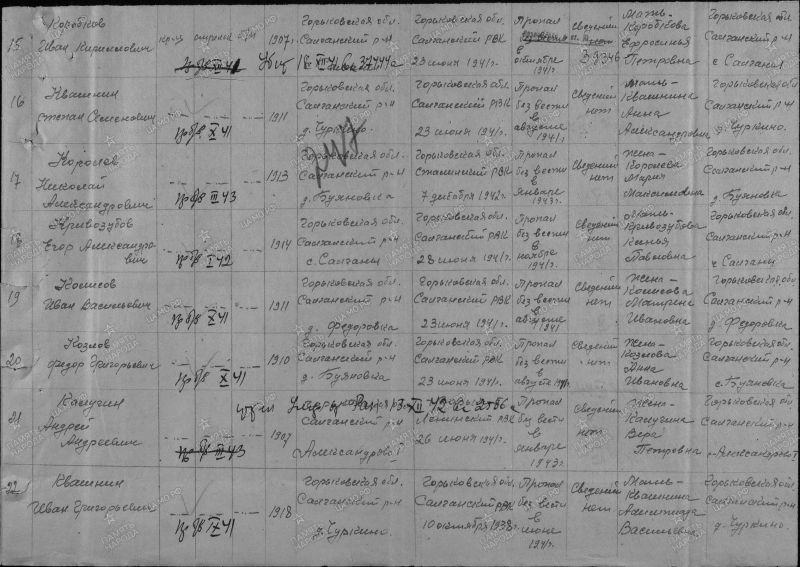 15 Коробков Иван Кириллович 1907г. Горьковская обл. Салганский р-н Горьковская обл. Салганский РВК 23 июня 1941г. Пропал в октябре 1941г. Сведений 39346 Мать- Коробкова Ефросинья Петровна Горьковская обл. Салганский р-н с. Салганы
16 Квашнин Степан Семенович пр б/в X 41 1911 Горьковская обл. Салганский р-н д. Чуркино. Горьковская обл. Салганский РВК 23 июня 1941г. Пропал без вести в августе 1941г. Сведений нет Мать- Квашнина Анна Александровна Горьковская обл. Салганский р-н д. Чуркино.
17 Королев Николай Александрович пр б/в III 43 1913 Горьковская обл. Салганский р-н д. Буяновка Горьковская обл. РВК 7 декабря 1942г. Пропал без вести в январе 1943г. Сведений нет Жена- Королева Мария Максимовна Горьковская обл. Салганский р-н д. Буяновка
18 Кривозубов Егор Александрович пр б/в I 42 1914 Горьковская обл. Салганский р-н с. Салганы Горьковская обл. Салганский РВК 23 июня 1941г. Пропал без вести в ноябре 1941г. Сведений нет Мать- Кривозубова Ксенья Павловна Горьковская обл. Салганский р-н с Салганы
19 Колисов Иван Васильевич пр б/в X 41 1911 Горьковская обл. Салганский р-н д. Федоровка Горьковская обл. Салганский РВК 23 июня 1941г. Пропал без вести в августе 1941 Сведений нет Жена- Колисова Матрена Ивановна Горьковская обл. Салганский р-н д. Федоровка
20 Козлов Федор Григорьевич пр б/в X 41 1910 Горьковская обл. Салганский р-н д. Буяновка Горьковская обл. Салганский РВК 23 июня 1941г. Пропал без вести в августе 1941г. Сведений нет Жена- Козлова Анна Ивановна Горьковская обл. Салганский р-н с. Буяновка
21 Калугин Андрей Андреевич пр б/в III 43 1907 Салганский р-н Ленинский РВК 26 июня 1941г. Пропал без вести в январе 1943г. Сведений нет Жена- Калугина Вера Петровна Горьковская обл. Салганский р-н
22 Квашнин Иван Григорьевич пр б/в IX 41 1918 Горьковская обл. Салганский р-н д. Чуркино. Горьковская обл. Салганский РВК 10 октября 1938г. Пропал без вести в июне 1941г. Сведений нет Мать- Квашнина Васильевна Горьковская обл. Салганский р-н д. Чуркино.